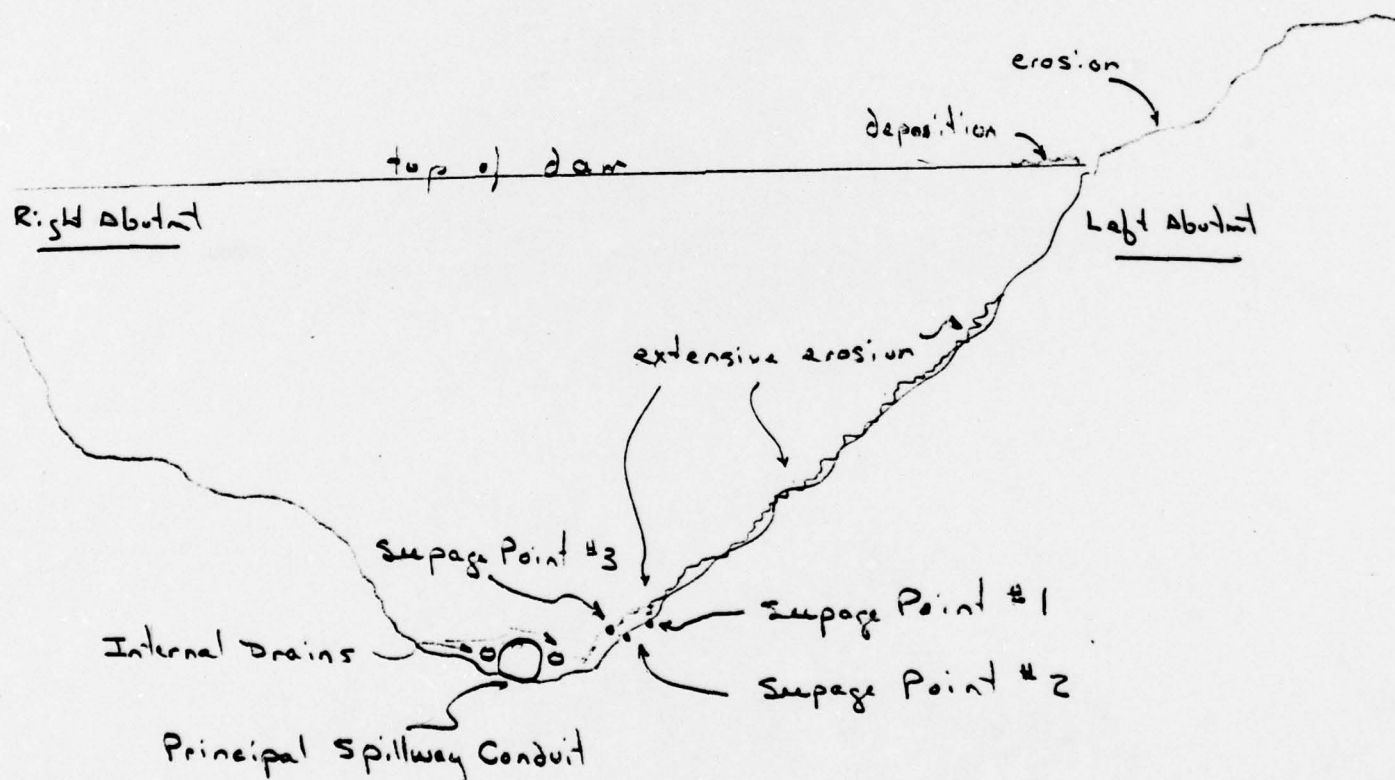 erosion
deposition
top of dam
Right Abutmt
Left Abutmt
extensive erosion
Seepage Point #3
Seepage Point #1
Internal Drains
Seepage Point #2
Principal Spillway Conduit